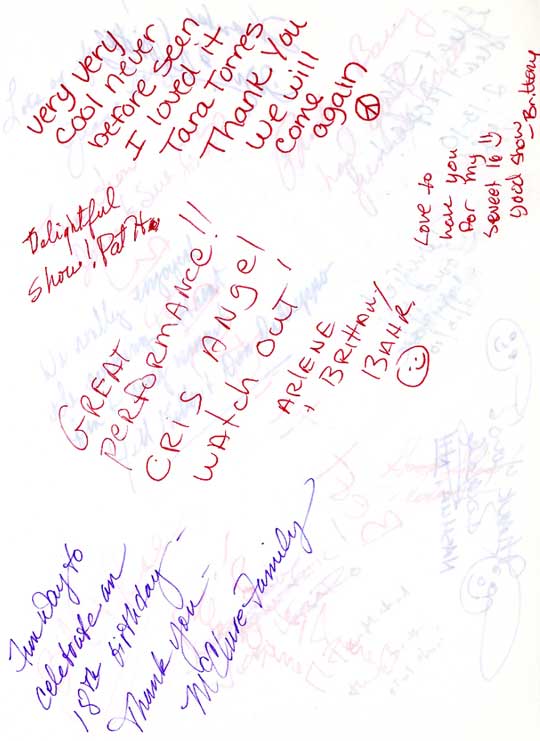 very very
cool never
before seen
I loved it
Tara Torres
Thank You
We will
come
again
Love to
have you
for my
sweet 16 !!
good show
-Brittany
Delightful
Show! Pat
GREAT
PERFORMANCE!!
CRIS ANGEL
WATCH OUT!
ARLENE
+ BRITTANY
BAHR
Fun way to
celebrate an
18th birthday -
Thank you -
McClure Family